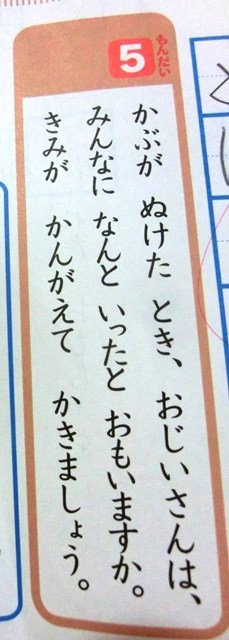 もんだい
5
かぶが ぬけた とき、おじいさんは、
みんなに なんと いったと おもいますか。
きみが かんがえて かきましょう。